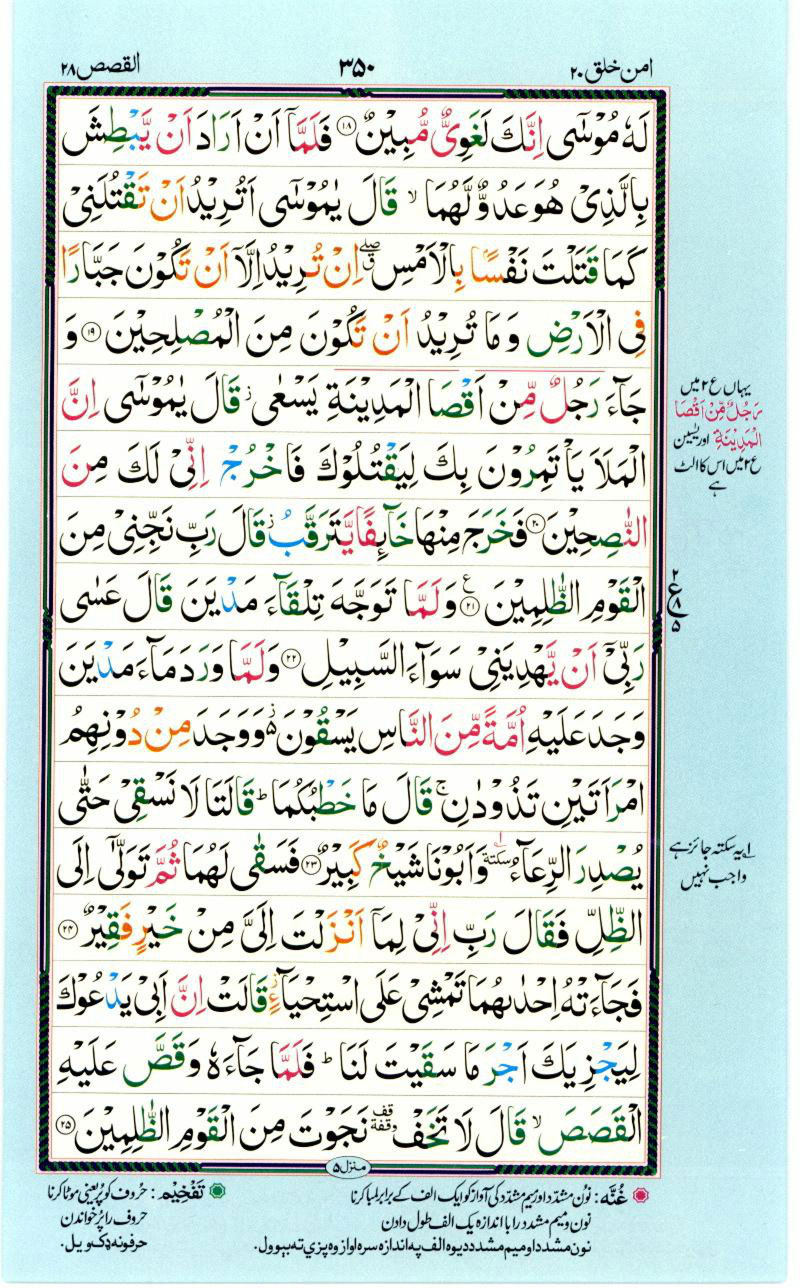 امن خلق ٢٠
٣٥٠
القصص ٢٨
لَهٗ مُوْسٰٓى اِنَّكَ لَغَوِىٌّ مُّبِيْنٌ ﴿١٨﴾ فَلَمَّاۤ اَنْ اَرَادَ اَنْ يَّبْطِشَ
بِالَّذِىْ هُوَ عَدُوٌّ لَّهُمَا ۙ قَالَ يٰمُوْسٰٓى اَتُرِيْدُ اَنْ تَقْتُلَنِىْ
كَمَا قَتَلْتَ نَفْسًاۢ بِالْاَمْسِ ۖ ق اِنْ تُرِيْدُ اِلَّاۤ اَنْ تَكُوْنَ جَبَّارًا
فِى الْاَرْضِ وَ مَا تُرِيْدُ اَنْ تَكُوْنَ مِنَ الْمُصْلِحِيْنَ ﴿١٩﴾ وَ
جَآءَ رَجُلٌ مِّنْ اَقْصَا الْمَدِيْنَةِ يَسْعٰى ز قَالَ يٰمُوْسٰٓى اِنَّ
الْمَلَاَ يَاْتَمِرُوْنَ بِكَ لِيَقْتُلُوْكَ فَاخْرُجْ اِنِّىْ لَكَ مِنَ
النّٰصِحِيْنَ ﴿٢٠﴾ فَخَرَجَ مِنْهَا خَآئِفًا يَّتَرَقَّبُ ز قَالَ رَبِّ نَجِّنِىْ مِنَ
الْقَوْمِ الظّٰلِمِيْنَ ﴿٢١﴾ ع وَلَمَّا تَوَجَّهَ تِلْقَآءَ مَدْيَنَ قَالَ عَسٰى
رَبِّىْۤ اَنْ يَّهْدِيَنِىْ سَوَآءَ السَّبِيْلِ ﴿٢٢﴾ وَلَمَّا وَرَدَ مَآءَ مَدْيَنَ
وَجَدَ عَلَيْهِ اُمَّةً مِّنَ النَّاسِ يَسْقُوْنَ ز وَوَجَدَ مِنْ دُوْنِهِمُ
امْرَاَتَيْنِ تَذُوْدٰنِ ۚ قَالَ مَا خَطْبُكُمَا ؕ قَالَتَا لَا نَسْقِىْ حَتّٰى
يُصْدِرَ الرِّعَآءُ سكتة وَاَبُوْنَا شَيْخٌ كَبِيْرٌ ﴿٢٣﴾ فَسَقٰى لَهُمَا ثُمَّ تَوَلّٰٓى اِلَى
الظِّلِّ فَقَالَ رَبِّ اِنِّىْ لِمَاۤ اَنْزَلْتَ اِلَىَّ مِنْ خَيْرٍ فَقِيْرٌ ﴿٢٤﴾
فَجَآءَتْهُ اِحْدٰىهُمَا تَمْشِىْ عَلَى اسْتِحْيَآءٍ ز قَالَتْ اِنَّ اَبِىْ يَدْعُوْكَ
لِيَجْزِيَكَ اَجْرَ مَا سَقَيْتَ لَنَا ؕ فَلَمَّا جَآءَهٗ وَقَصَّ عَلَيْهِ
الْقَصَصَ ۙ قَالَ لَا تَخَفْ قف وقفة نَجَوْتَ مِنَ الْقَوْمِ الظّٰلِمِيْنَ ﴿٢٥﴾
یہاں ع ٢ میں
رَجُلٌ مِّنْ اَقْصَا
الْمَدِيْنَةِ اور یٰسین
ع ٢ میں اس کا الٹ
ہے
٢
ع
٨
٥
١ یہ سکتہ جائز ہے
واجب نہیں
منزل ٥
غُنَّه: نون مشدّد اور میم مشدّد کی آواز کو ایک الف کے برابر لمبا کرنا
نون و میم مشدد را با اندازه یک الف طول دادن
نون مشدد او میم مشدد دیوه الف په اندازه سره اواز وه پزې ته بېوول.
تَفْخِيْم: حروف کو پُر یعنی موٹا کرنا
حروف را پُر خواندن
حرفونه ډک ویل.